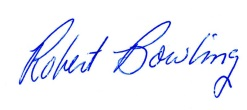 Robert Bowling